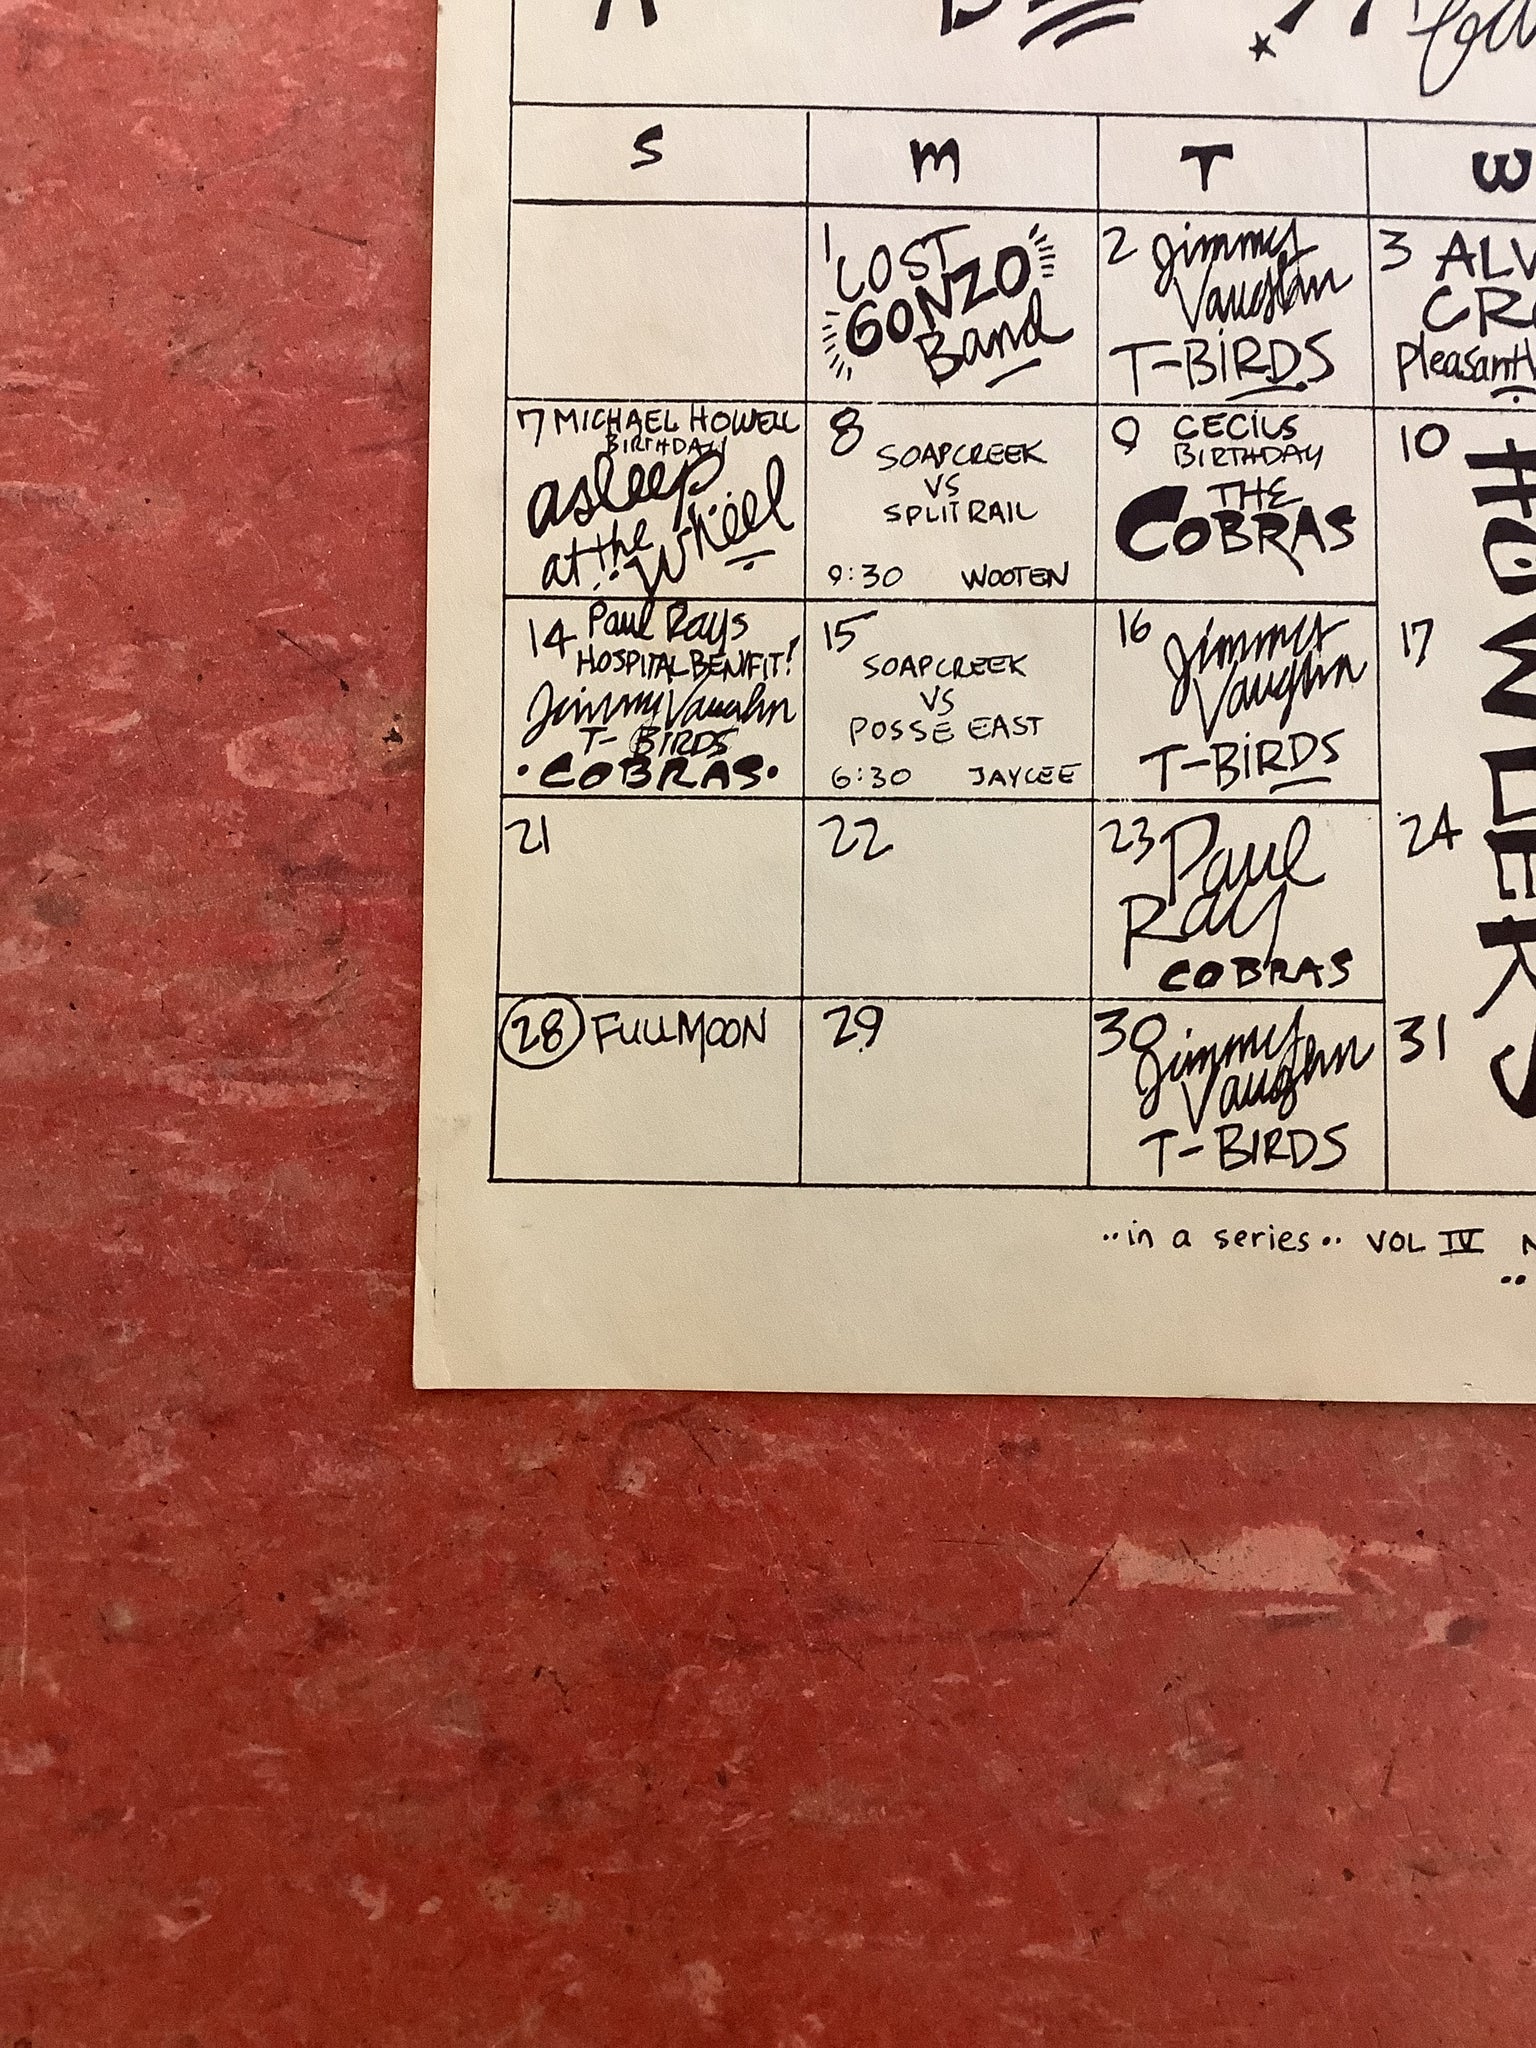 S M T W
1 LOST
GONZO
Band
2 Jimmy
Vaughn
T-BIRDS
3 ALV
CR
Pleasant
7 MICHAEL HOWELL
BIRTHDAY!
asleep
at the
Wheel
8
SOAPCREEK
VS
SPLIT RAIL
9:30 WOOTEN
9 CECILS
BIRTHDAY
THE
COBRAS
10
14 Paul Rays
HOSPITAL BENIFIT!
Jimmy Vaughn
T-BIRDS
•COBRAS•
15
SOAPCREEK
VS
POSSE EAST
6:30 JAYCEE
16 Jimmy
Vaughn
T-BIRDS
17
21
22
23 Paul
Ray
COBRAS
24
28 FULLMOON
29
30 Jimmy
Vaughn
T-BIRDS
31
HOWLERS
..in a series.. VOL IV